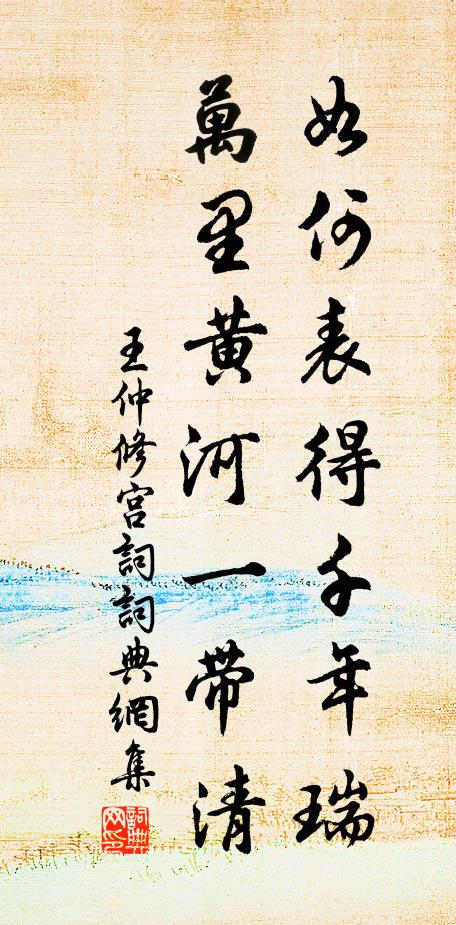 如何表得千年瑞
萬里黃河一帶清
王仲修宮詞詞典網集
詞典网印